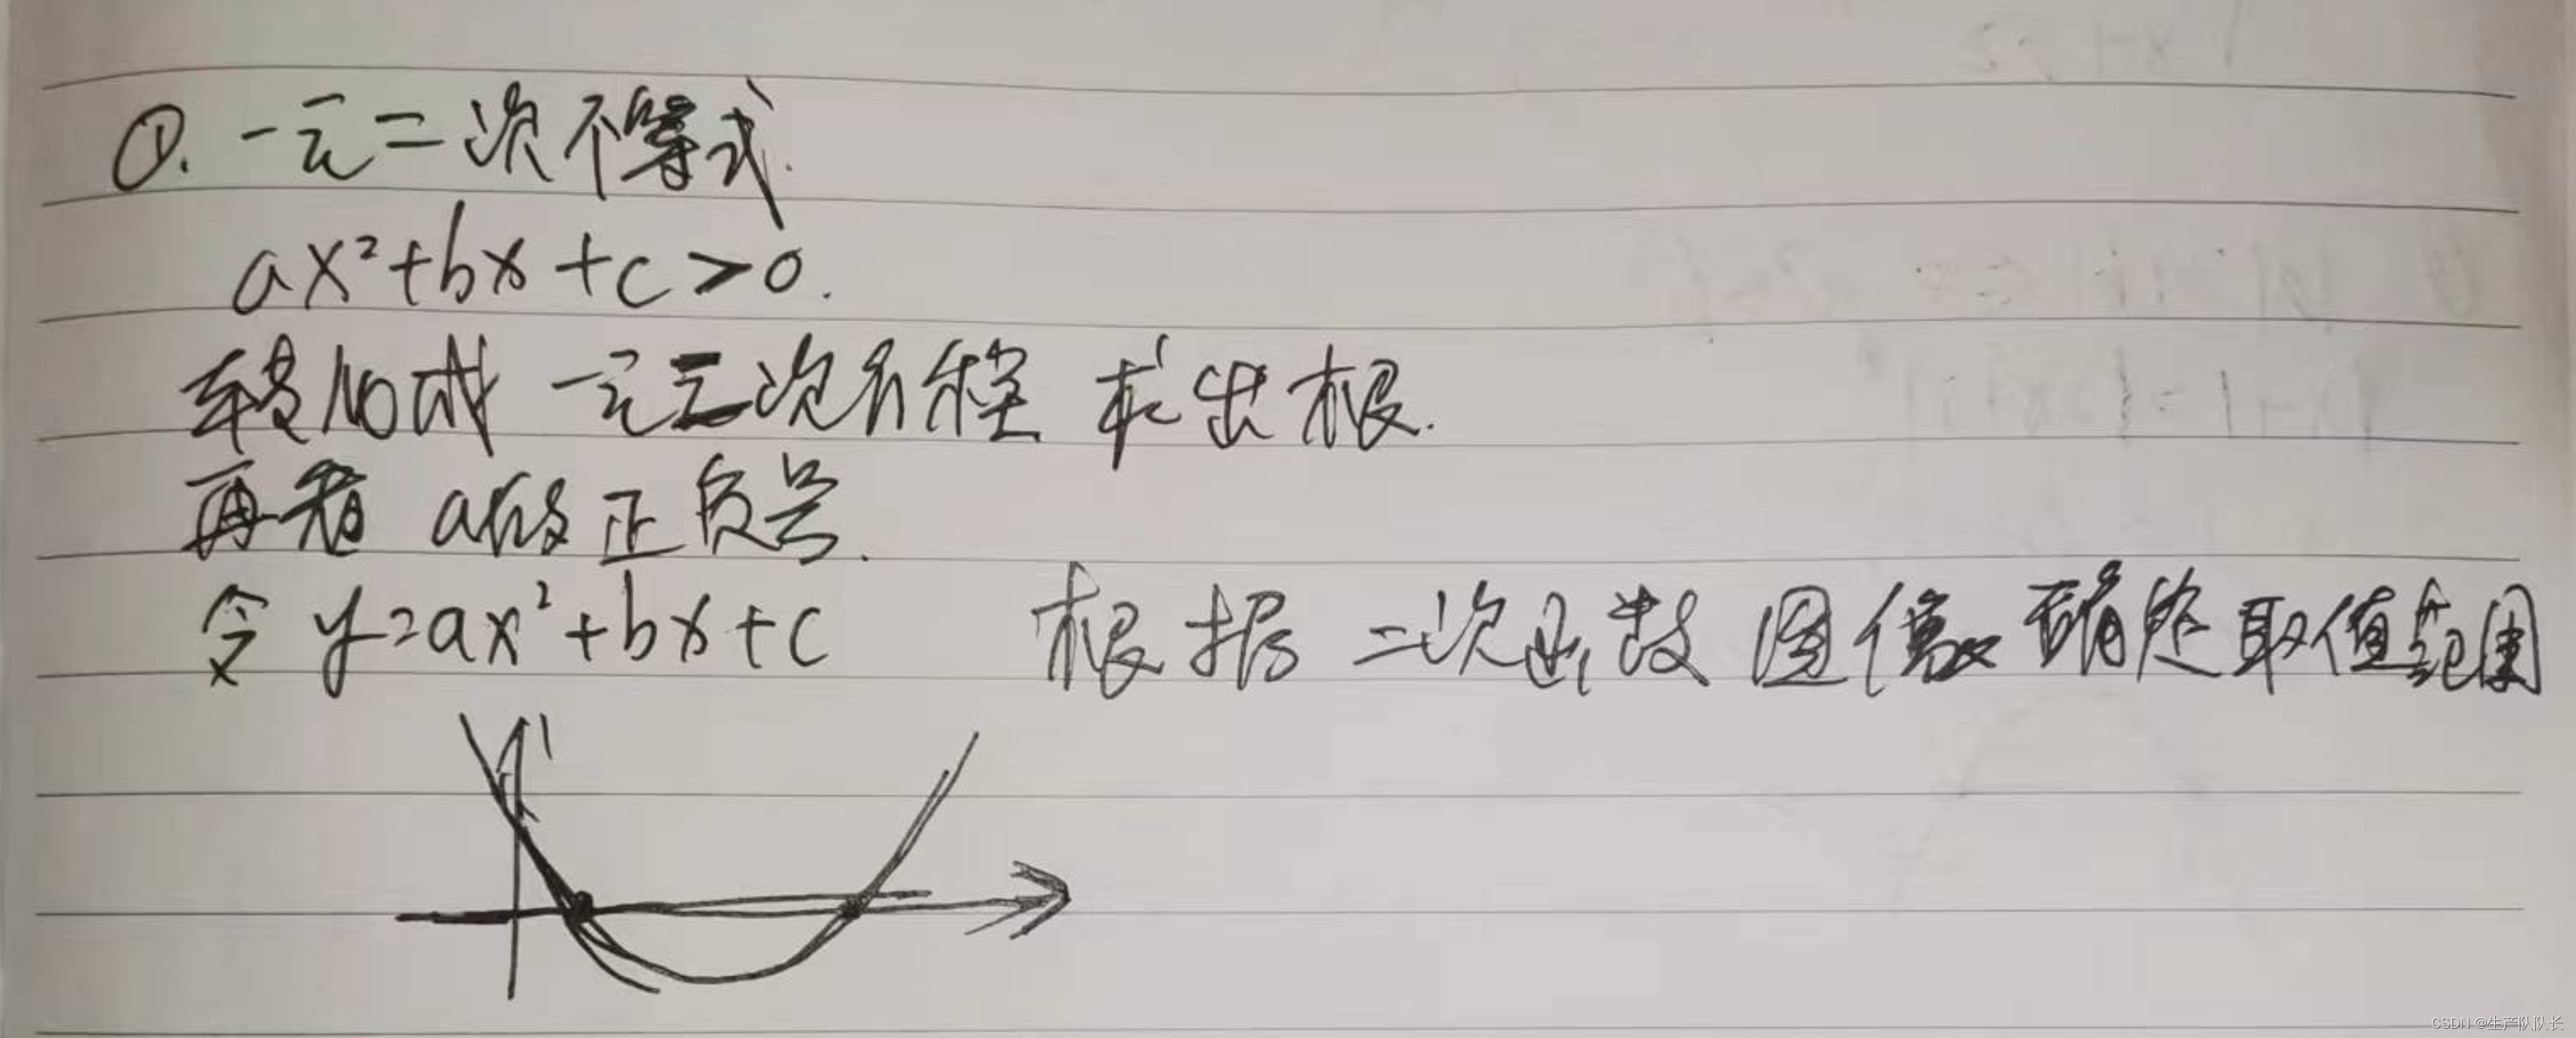 ①. 一元二次不等式.
ax²+bx+c>0.
转化成 一元二次方程 求出根.
再看 a的正负号.
令 y=ax²+bx+c 根据 二次函数 图像 确定 取值范围
CSDN @生产队队长